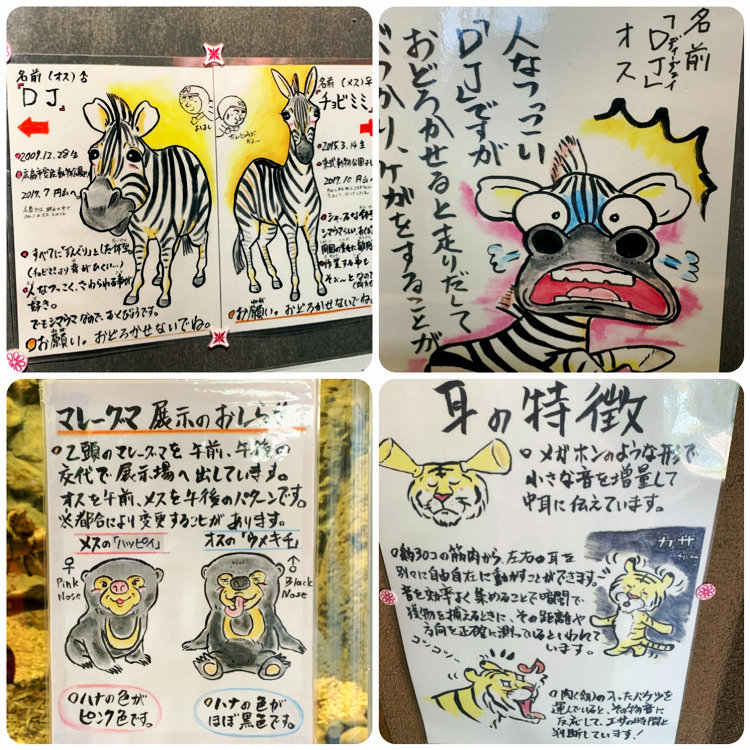 名前(オス)♂
『DJ』
●2009.12.28生
●2017.7円山へ。
●すべてに「ずんぐり」とした体型。
(チョビミミより背がひくい…)
●人なつっこく、さわられる事が
好き。
でもシマウマなので、おくびょうです。
●お願い。おどろかせないでね。
名前(メス)♀
『チョビミミ』
●2015.3.14生
●2017.10円山へ
お願い。おどろかせないでね。
名前
「DJ」
ディージェイ
オス
人なつっこい
「DJ」ですが
おどろかせると走りだして
ぶつかり、ケガをすることが
マレーグマ 展示のおしらせ
●2頭のマレーグマを午前、午後の
交代で展示場へ出しています。
オスを午前、メスを午後のパターンです。
※都合により変更することがあります。
メスの「ハッピイ」
♀
Pink
Nose
オスの「ウメキチ」
♂
Black
Nose
ハナの色が
ピンク色です。
ハナの色が
ほぼ黒色です。
耳の特徴
●メガホンのような形で
小さな音を増量して
中耳に伝えています。
カサ
●約30コの筋肉から、左右の耳を
別々に自由自在に動かすことができます。
音を効率よく集めることで瞬間で
獲物を捕えるときに、その距離や
方向を正確に測っているといわれて
います。
ゴンゴン
●肉(餌)の入ったバケツを
運んでいると、その物音に
反応して、エサの時間と
判断しています!